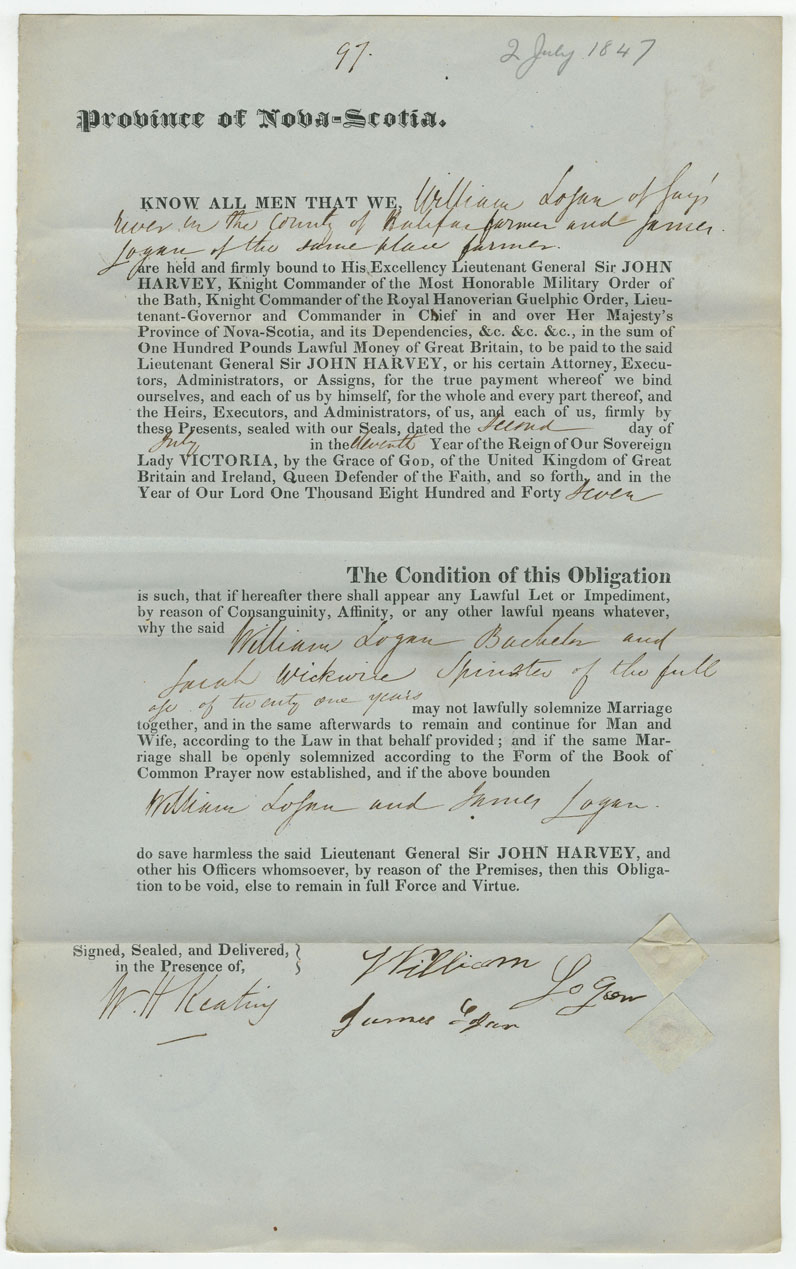 97.
2 July 1847
Province of Nova-Scotia.
KNOW ALL MEN THAT WE, William Logan of Gay's
River in the County of Halifax farmer and James
Logan of the same place farmer.
are held and firmly bound to His Excellency Lieutenant General Sir JOHN
HARVEY, Knight Commander of the Most Honorable Military Order of
the Bath, Knight Commander of the Royal Hanoverian Guelphic Order, Lieu-
tenant-Governor and Commander in Chief in and over Her Majesty's
Province of Nova-Scotia, and its Dependencies, &c. &c. &c., in the sum of
One Hundred Pounds Lawful Money of Great Britain, to be paid to the said
Lieutenant General Sir JOHN HARVEY, or his certain Attorney, Execu-
tors, Administrators, or Assigns, for the true payment whereof we bind
ourselves, and each of us by himself, for the whole and every part thereof, and
the Heirs, Executors, and Administrators, of us, and each of us, firmly by
these Presents, sealed with our Seals, dated the Second day of
July in the eleventh Year of the Reign of Our Sovereign
Lady VICTORIA, by the Grace of GOD, of the United Kingdom of Great
Britain and Ireland, Queen Defender of the Faith, and so forth, and in the
Year of Our Lord One Thousand Eight Hundred and Forty Seven
The Condition of this Obligation
is such, that if hereafter there shall appear any Lawful Let or Impediment,
by reason of Consanguinity, Affinity, or any other lawful means whatever,
why the said William Logan Bachelor and
Sarah Wickwire Spinster of the full
age of twenty one years may not lawfully solemnize Marriage
together, and in the same afterwards to remain and continue for Man and
Wife, according to the Law in that behalf provided; and if the same Mar-
riage shall be openly solemnized according to the Form of the Book of
Common Prayer now established, and if the above bounden
William Logan and James Logan.
do save harmless the said Lieutenant General Sir JOHN HARVEY, and
other his Officers whomsoever, by reason of the Premises, then this Obliga-
tion to be void, else to remain in full Force and Virtue.
Signed, Sealed, and Delivered,
in the Presence of,
W. H Keating
William Logan
James Logan